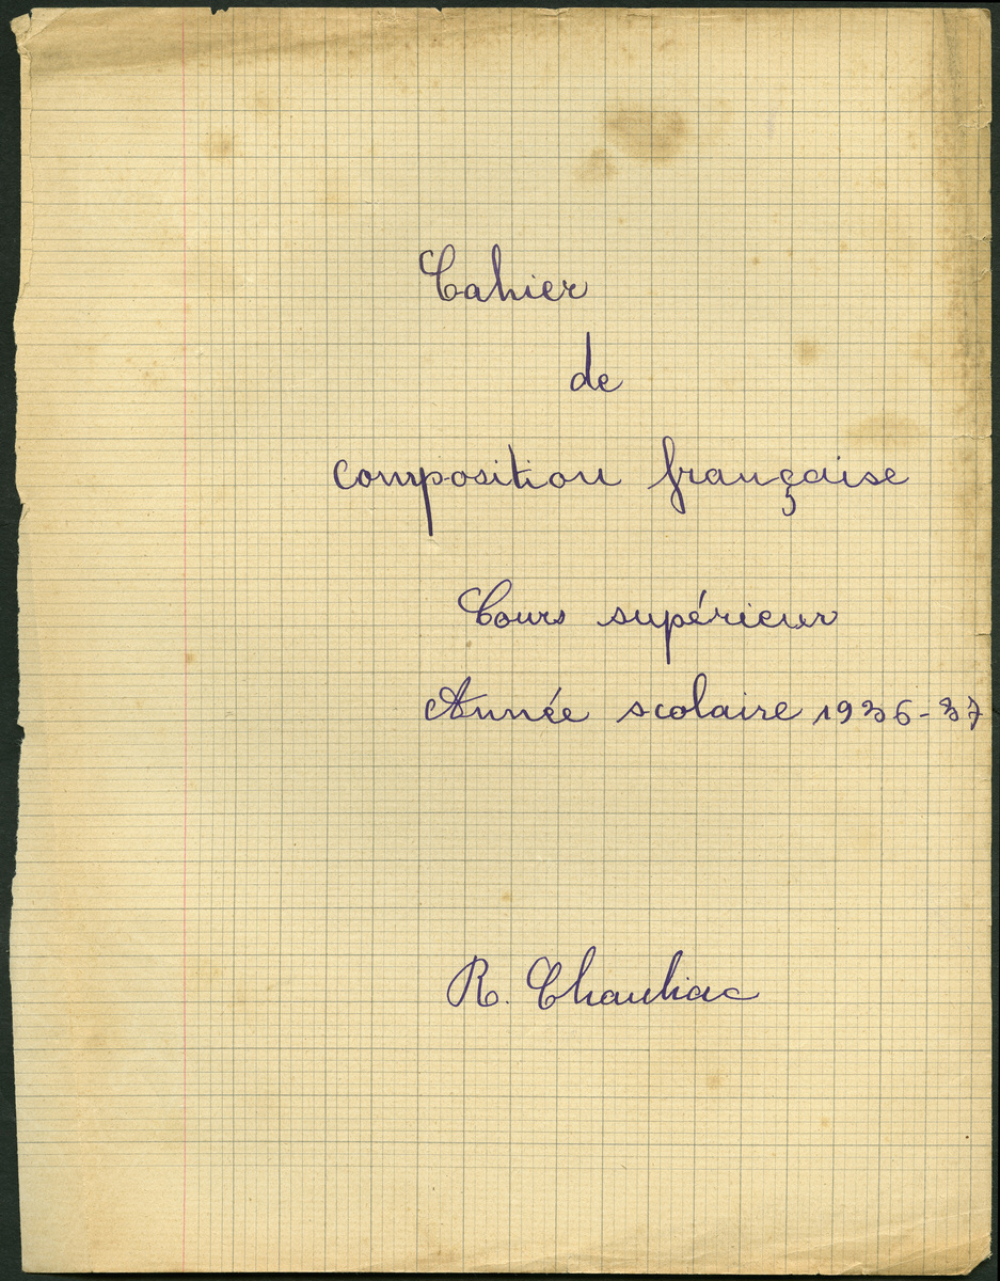 Cahier
de
composition française
Cours supérieur
Année scolaire 1936-37
R. Chauliac